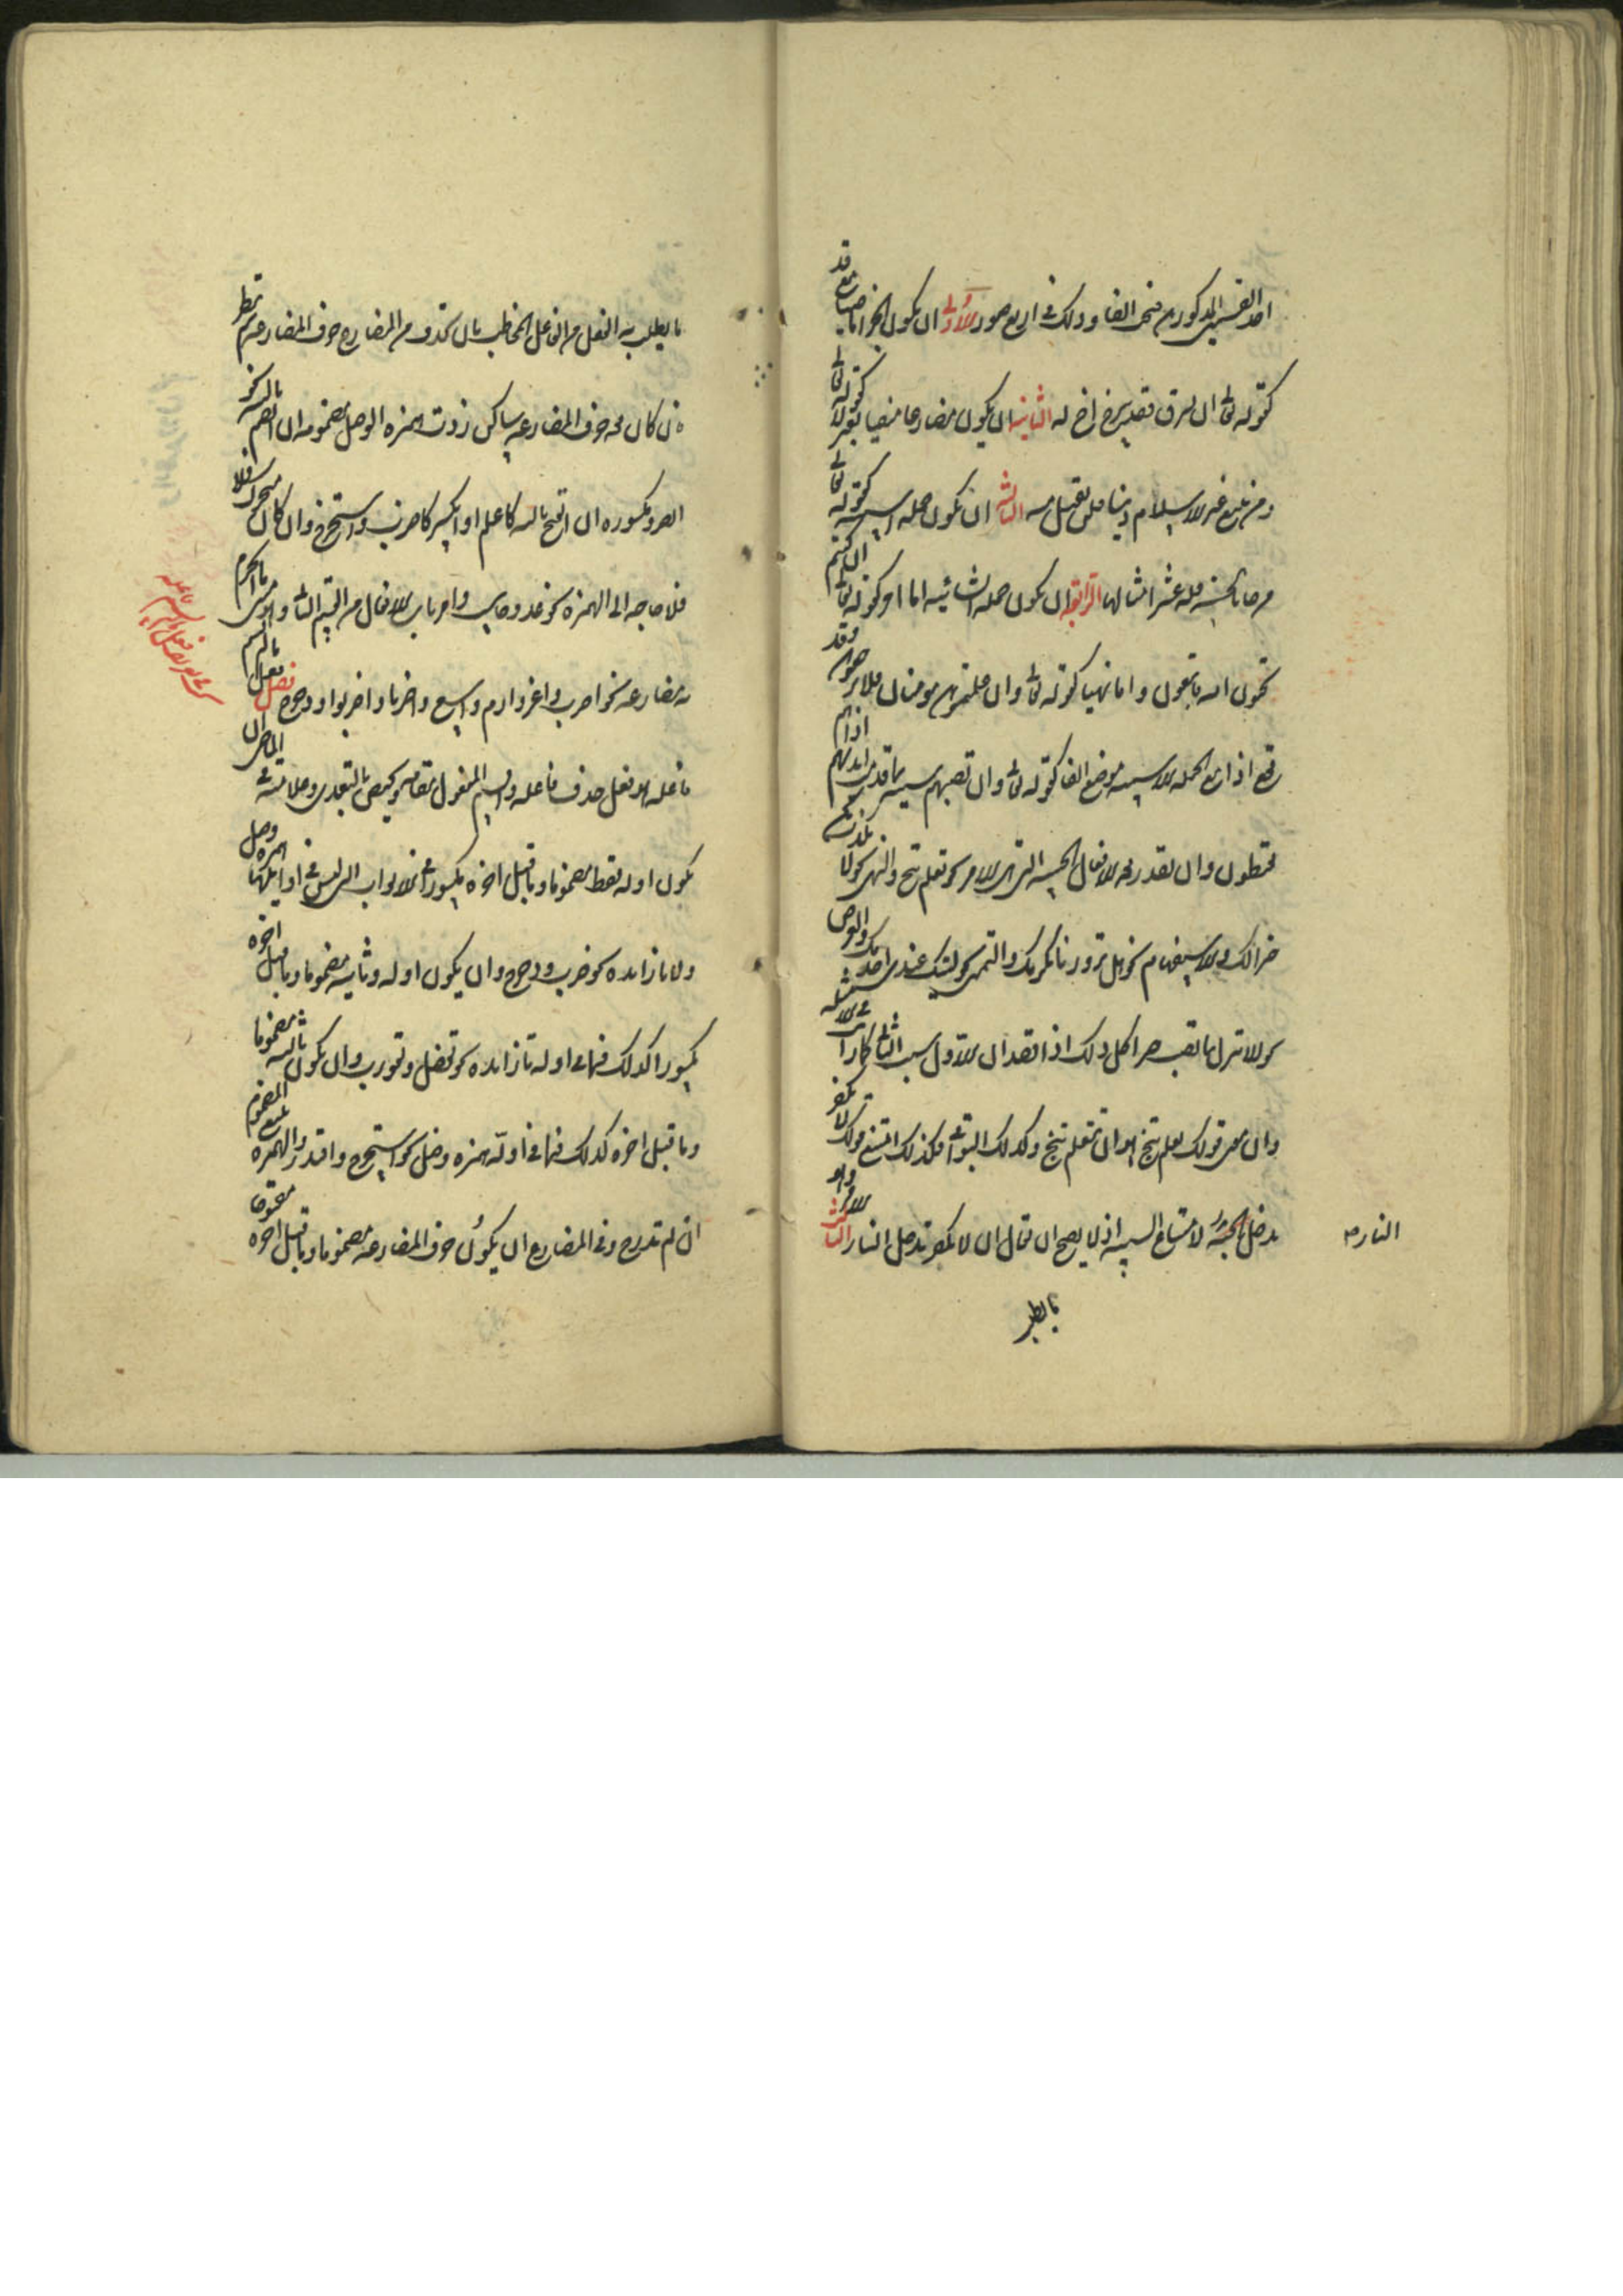 احد القسمين المذكورين فتجب الفا وذلك فى اربع صور الاولى ان يكون الجزا ماضيا مع قد
كقوله تعالى ان يسرق فقد سرق اخ له الثانية ان يكون مضارعا منفيا بغير لا كقوله تعالى
ومن يبتغ غير الاسلام دينا فلن يقبل منه الثالثة ان يكون جملة اسمية كقوله تعالى
من جا بالحسنة فله عشر امثالها الرابعة ان يكون جملة انشائية اما امرا كقوله تعالى ان كنتم
تحبون الله فاتبعونى واما نهيا كقوله تعالى وان علمتموهن مومنات فلا ترجعوهن وقد
يقع اذا مع الجملة الاسمية موضع الفا كقوله تعالى وان تصبهم سيئة بما قدمت ايديهم اذا هم
يقنطون وان يقدر بعد الافعال الخمسة التى هى الامر نحو تعلم تنج والنهى نحو لا تكذب يكن
خيرا لك والاستفهام نحو هل تزورنا نكرمك والتمنى نحو ليتك عندى اخدمك والعرض
نحو الا تنزل بنا تصب خيرا كل ذلك اذا قصد ان الاول سبب الثانى كما رايت فى الامثلة
فان معنى قولك تعلم تنج هو ان تتعلم تنج وكذلك البواقى فلذلك امتنع قولك لا تكفر
تدخل الجنة لامتناع السببية اذ لا يصح ان يقال ان لا تكفر تدخل النار الثالث الامر وهو
النار صح
ما يطلب
ما يطلب به الفعل من الفاعل المخاطب بان تحذف من المضارع حرف المضارعة ثم تنظر
فان كان بعد حرف المضارعة ساكن زدت همزة الوصل مضمومة ان انضم ثالثه نحو
انصر ومكسورة ان انفتح ثالثه كاعلم او انكسر كاضرب واستخرج وان كان متحركا فلا
فلا حاجة الى الهمزة نحو عد وحاسب وامر باب الافعال من القسم الثانى وهو مبنى على ما يجزم به
مضارعه نحو اضرب واغز وارم واسع واضربا واضربوا ودحرج فصل فعل ما لم يسم
فاعله هو فعل حذف فاعله واقيم المفعول مقامه ويختص بالمتعدى وعلامته فى الماضى ان
يكون اوله فقط مضموما وما قبل اخره مكسورا فى الابواب التى ليس فى اوائلها همزة وصل
ولا تا زائدة نحو ضرب ودحرج وان يكون اوله وثانيه مضموما وما قبل اخره
مكسورا كذلك فيما فى اوله تا زائدة نحو تفضل وتضورب وان يكون اوله وثالثه مضموما
وما قبل اخره كذلك فيما فى اوله همزة وصل نحو استخرج واقتدر والهمزة تتبع المضموم
ان لم تدرج وفى المضارع ان يكون حرف المضارعة مضموما وما قبل اخره مفتوحا